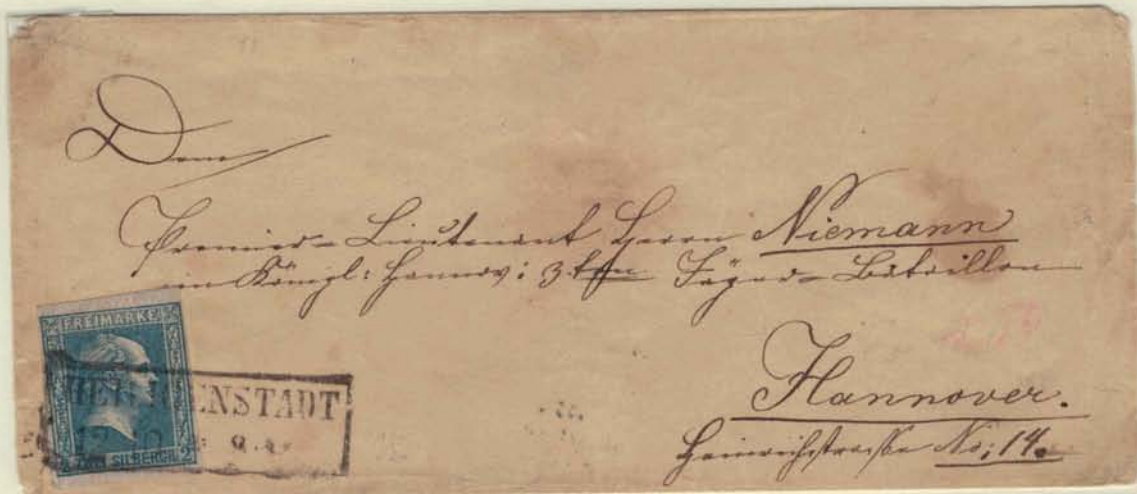 Dem
Premier-Lieutenant Herrn Niemann
im Königl: Hannov: 3ten Jäger-Bataillon
Hannover.
Heinrichstrasse No: 14.
FREIMARKE
ZWEI SILBERGR. 2
HEILIGENSTADT